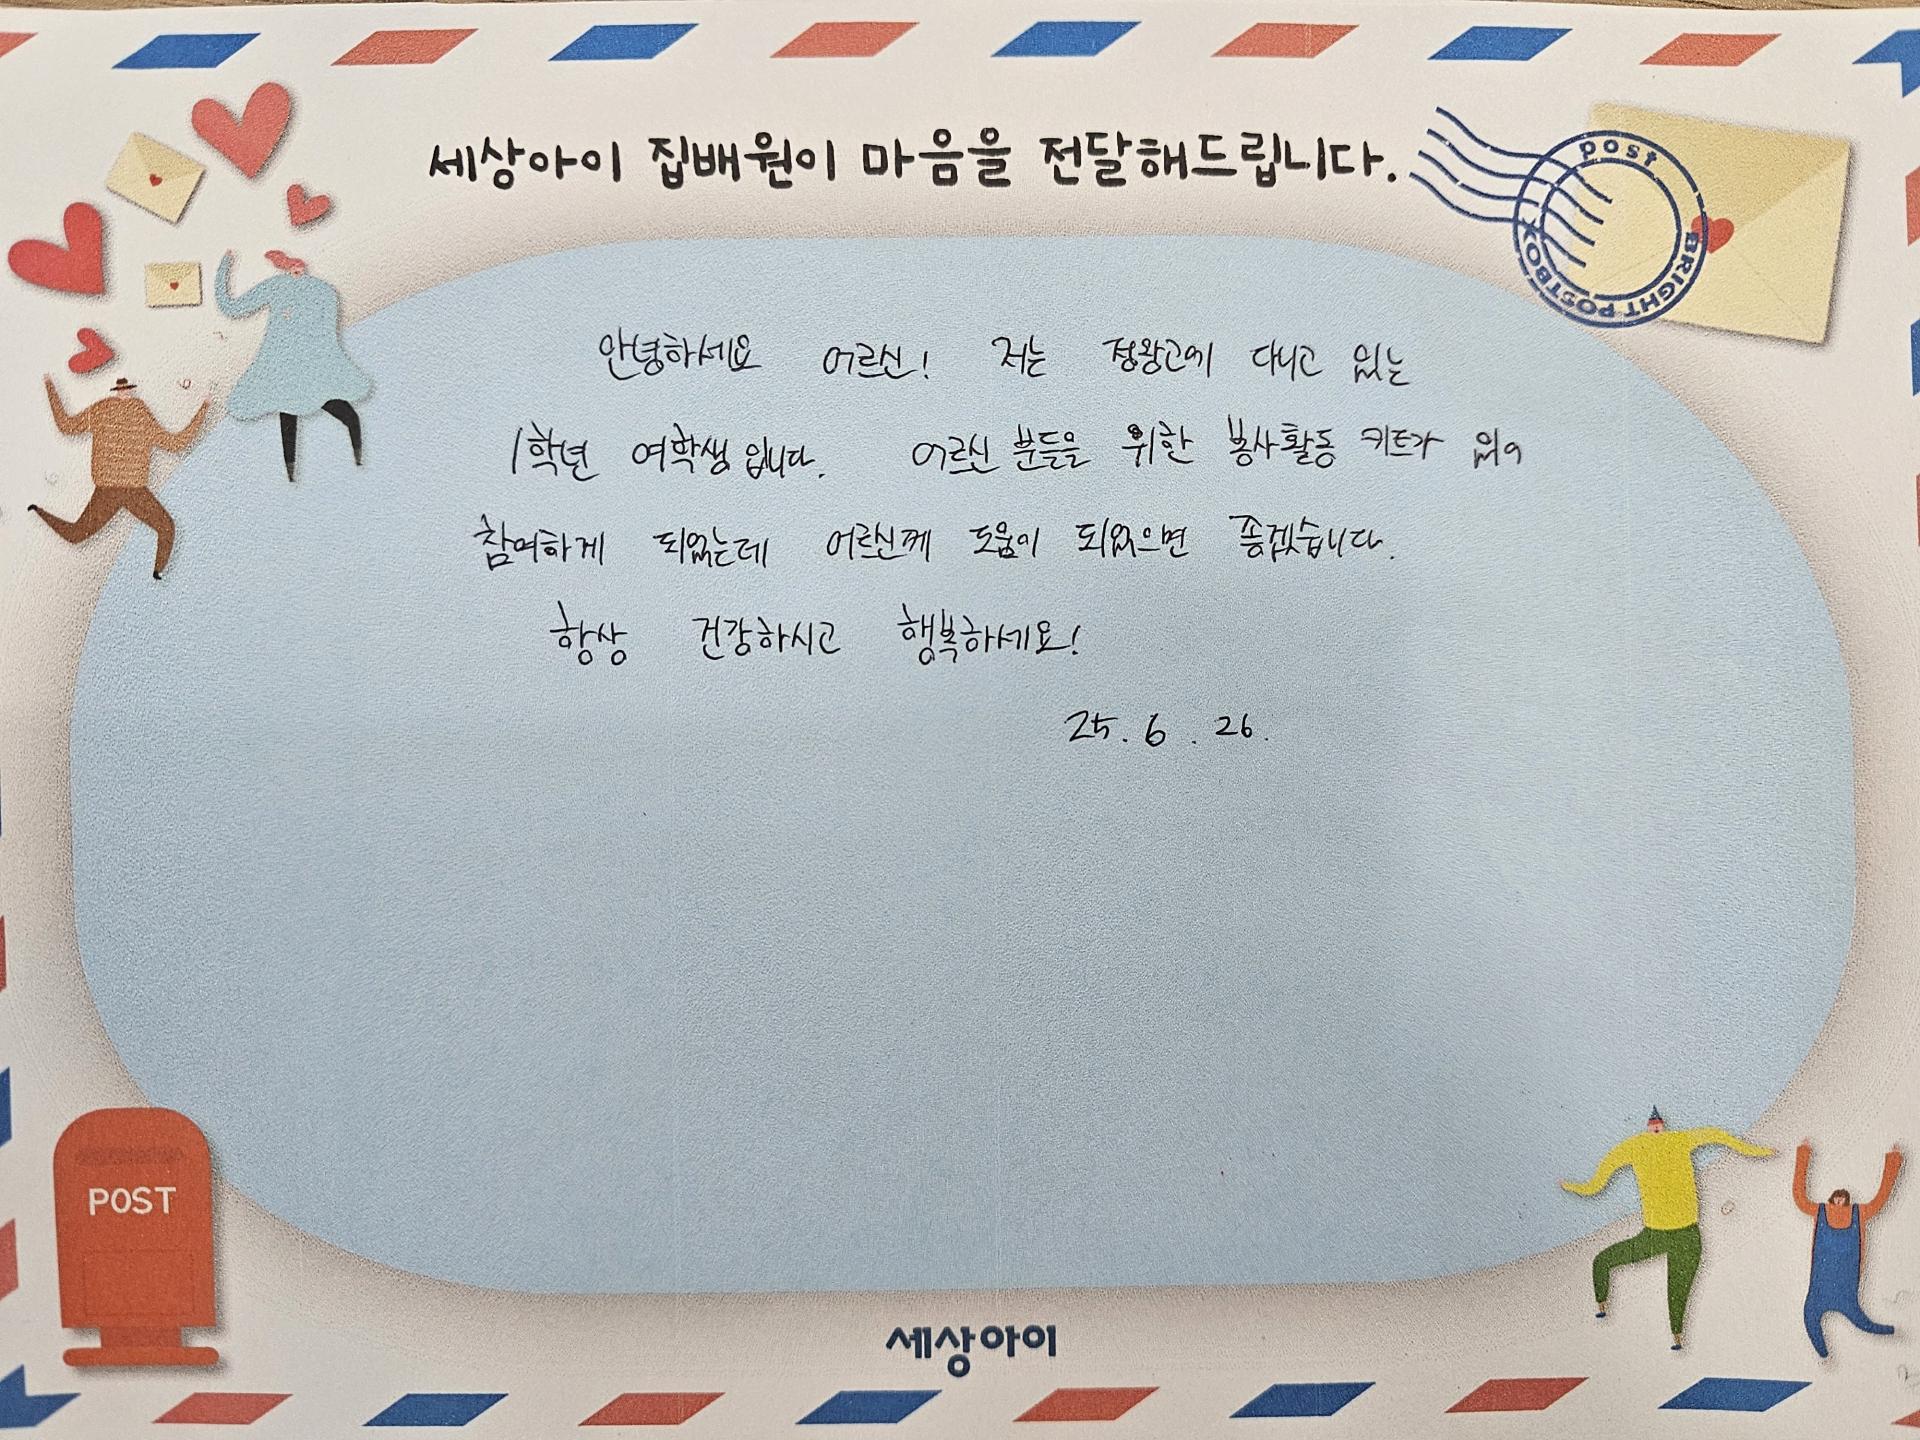 세상아이 집배원이 마음을 전달해드립니다.
post
BRIGHT POSTBOX
안녕하세요 어르신! 저는 정왕고에 다니고 있는
1학년 여학생입니다. 어르신 분들을 위한 봉사활동 키트가 있어
참여하게 되었는데 어르신께 도움이 되었으면 좋겠습니다.
항상 건강하시고 행복하세요!
25. 6. 26.
POST
세상아이